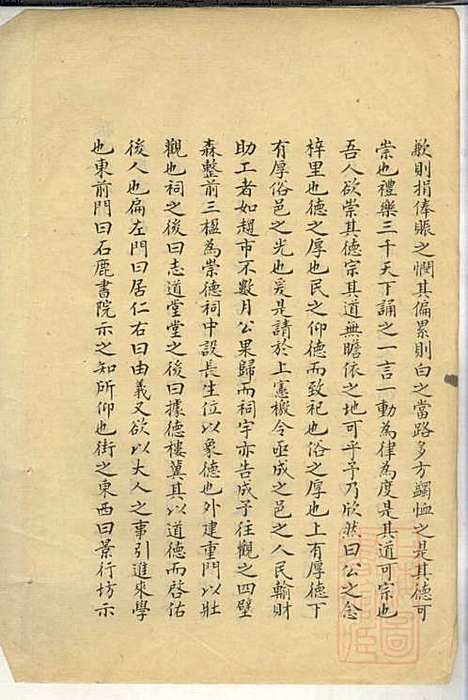 歉則捐俸賑之憫其偏累則白之當路多方蠲恤之是其德可
崇也禮樂三千天下誦之一言一動為律為度是其道可宗也
吾人欲崇其德宗其道無瞻依之地可乎予乃欣然曰公之念
梓里也德之厚也民之仰德而致祀也俗之厚也上有厚德下
有厚俗邑之光也爰是請於上憲檄今亟成之邑之人民輸財
助工者如趨市不數月公果歸而祠宇亦告成予往觀之四壁
森整前三楹為崇德祠中設長生位以象德也外建重門以壯
觀也祠之後曰志道堂堂之後曰據德樓冀其以道德而啓佑
後人也扁左門曰居仁右曰由義又欲以大人之事引進來學
也東前門曰石鹿書院示之知所仰也街之東西曰景行坊示